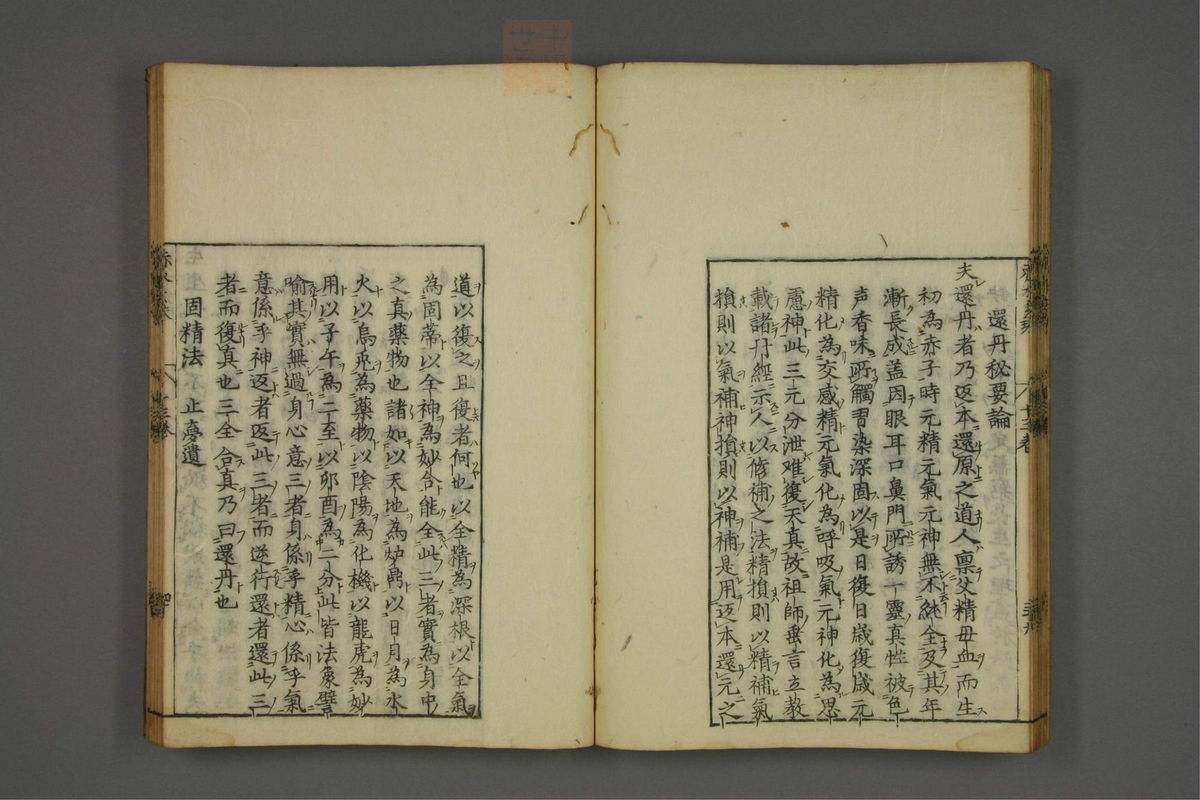 還丹秘要論
夫還丹者乃返本還原之道人稟父精毋血而生
初為赤子時元精元氣元神無不純全及其年
漸長成盖因眼耳口鼻門所誘一靈真性被色
声香味所觸習染深固以是日復日歲復歲元
精化為交感精元氣化為呼吸氣元神化為思
慮神此三元分泄难復天真故祖師垂言立教
載諸丹經示人以修補之法精損則以精補氣
損則以氣補神損則以神補是用返本還元之
道以復之且復者何也以全精為深根以全氣
為固蒂以全神為妙合能全此三者實為身中
之真藥物也諸如以天地為炉鼎以日月為水
火以烏兎為藥物以陰陽為化機以龍虎為妙
用以子午為二至以卯酉為二分此皆法象譬
喻其實無過身心意三者身係乎精心係乎氣
意係乎神返者返此三者而逆行還者還此三
者而復真也三全合真乃曰還丹也
固精法 止夢遺